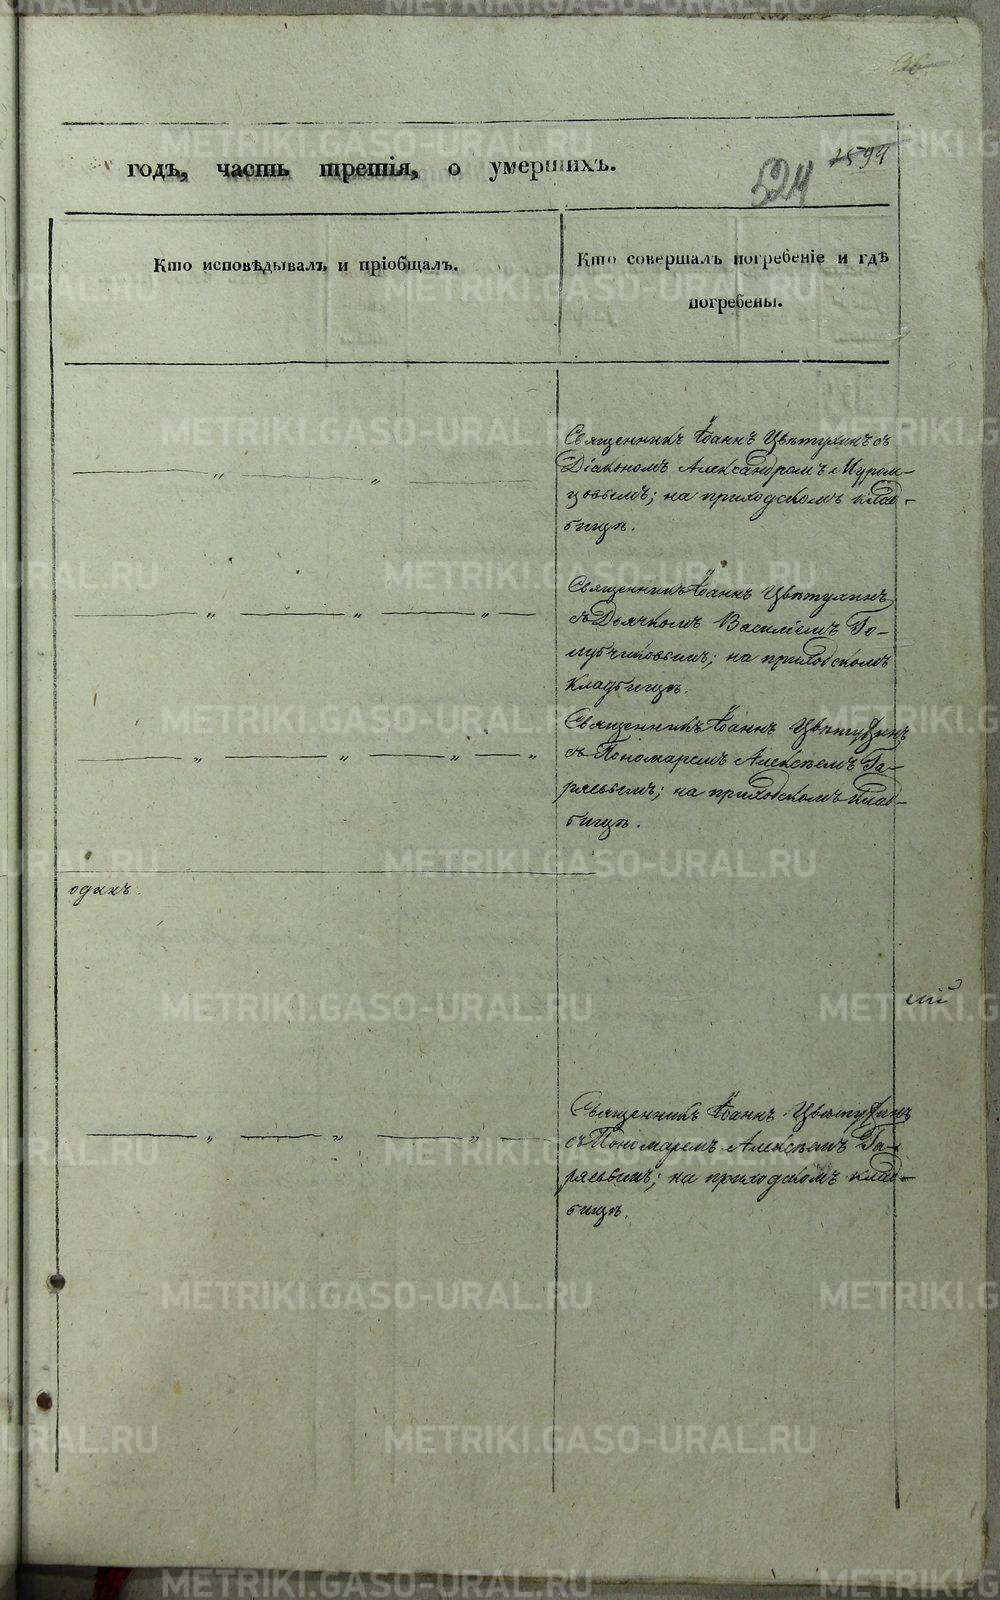 годъ, часть третія, о умершихъ.
524
1594
Кто исповѣдывалъ и пріобщалъ.
Кто совершалъ погребеніе и гдѣ
погребены.
Священникъ Іоаннъ Цвѣтухинъ съ
Діакономъ Александромъ Муром-
цовымъ; на приходскомъ клад-
бищѣ.
Священникъ Іоаннъ Цвѣтухинъ
съ Дьячкомъ Василіемъ Го-
лубчиковымъ; на приходскомъ
кладбищѣ.
Священникъ Іоаннъ Цвѣтухинъ
съ Пономаремъ Алексѣемъ Га-
ряевымъ; на приходскомъ клад-
бищѣ.
одинъ.
Священникъ Іоаннъ Цвѣтухинъ
съ Пономаремъ Алексѣемъ Га-
ряевымъ; на приходскомъ клад-
бищѣ.
METRIKI.GASO-URAL.RU